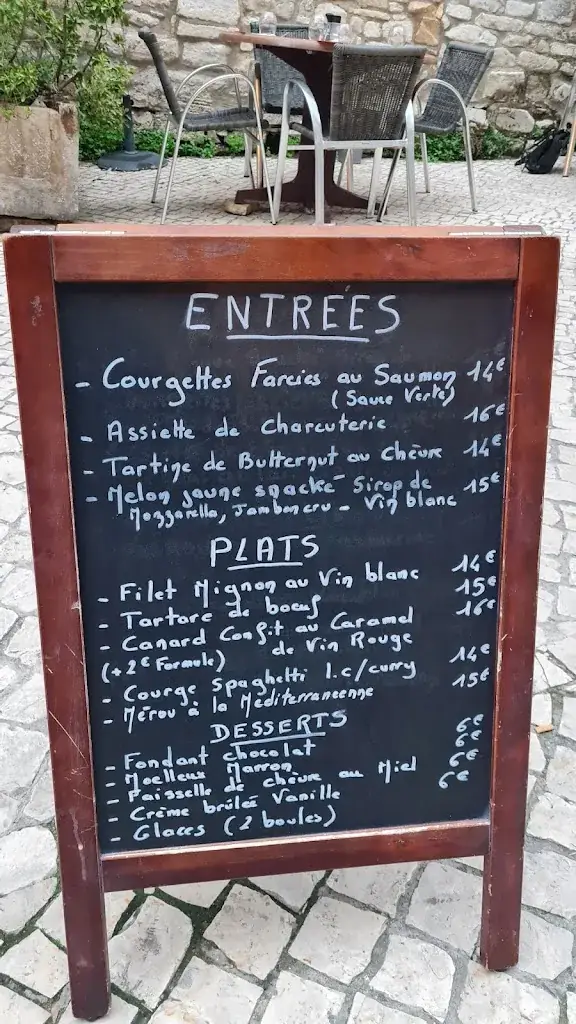 ENTRÉES
- Courgettes Farcies au Saumon 14€
(Sauce Verte)
- Assiette de charcuterie 16€
- Tartine de Butternut au chèvre 14€
- Melon jaune snacké Sirop de 15€
Mozzarella, Jambon cru - Vin blanc
PLATS
- Filet Mignon au Vin blanc 14€
- Tartare de boeuf 15€
- Canard Confit au Caramel 16€
(+2€ Formule) de Vin Rouge
- Courge Spaghetti l.c/curry 14€
- Mérou à la Méditerranéenne 15€
DESSERTS
- Fondant chocolat 6€
- Moelleux Marron 6€
- Faisselle de chèvre au Miel 6€
- Crème brûlée Vanille 6€
- Glaces (2 boules)